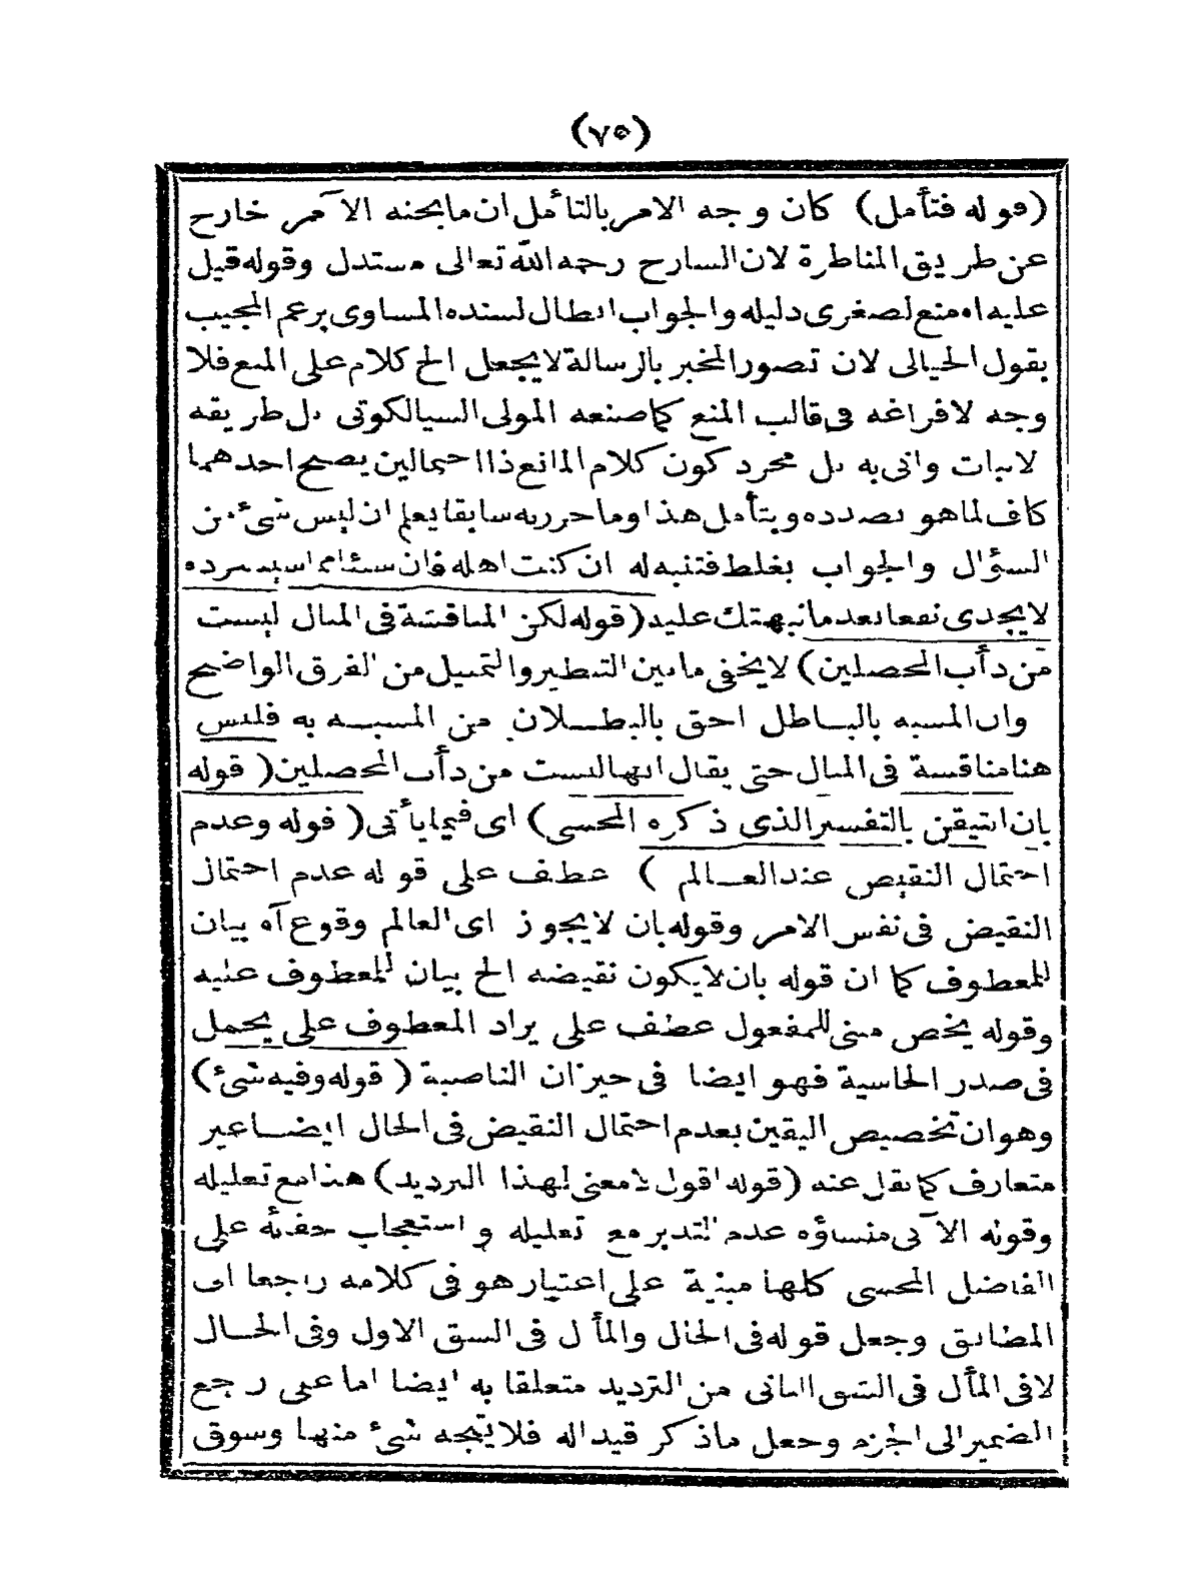 (٧٥)
(قوله فتأمل) كان وجه الامر بالتأمل ان ما بحثه الآمر خارج
عن طريق المناظرة لان الشارح رحمه الله تعالى مستدل وقوله قيل
عليه اه منع لصغرى دليله والجواب ابطال لسنده المساوى بزعم المجيب
بقول الخيالى لان تصور المخبر بالرسالة لا يجعل الخ كلام على المنع فلا
وجه لافراغه فى قالب المنع كما صنعه المولى السيالكوتى بل طريقه
لاثبات وانى به بل مجرد كون كلام المانع ذا احتمالين يصح احدهما
كاف لما هو بصدده ويتأمل هذا وما حرر به سابقا يعلم ان ليس شئ من
السؤال والجواب بغلط فتنبه له ان كنت اهله فان
لا يجدى نفعا بعد ما نبهتك عليه (قوله لكن المناقشة فى المثال ليست
من دأب المحصلين) لا يخفى ما بين التنظير والتمثيل من الفرق الواضح
وان المشبه بالباطل احق بالبطلان من المشبه به فليس
هنا مناقشة فى المثال حتى يقال انها ليست من دأب المحصلين (قوله
بان التيقن بالتفسير الذى ذكره المحشى) اى فيما يأتى (قوله وعدم
احتمال النقيض عند العالم) عطف على قوله عدم احتمال
النقيض فى نفس الامر وقوله بان لا يجوز اى العالم وقوع آه بيان
للمعطوف كما ان قوله بان لا يكون نقيضه الخ بيان للمعطوف عليه
وقوله يخص مبنى للمفعول عطف على يراد المعطوف على يحمل
فى صدر الحاشية فهو ايضا فى حيز ان الناصبة (قوله وفيه شئ)
وهو ان تخصيص اليقين بعدم احتمال النقيض فى الحال ايضا غير
متعارف كما نقل عنه (قوله اقول لا معنى لهذا الترديد) هذا مع تعليله
وقوله الآتى منشاؤه عدم التدبر مع تعليله و استعجاب حفيّه على
الفاضل المحشى كلها مبنية على اعتبار هو فى كلامه راجعا الى
المطابق وجعل قوله فى الحال والمأل فى الشق الاول وفى الحال
لا فى المأل فى الشق الثانى من الترديد متعلقا به ايضا اما على رجع
الضمير الى الجزم وجعل ما ذكر قيدا له فلا يتجه شئ منها وسوق